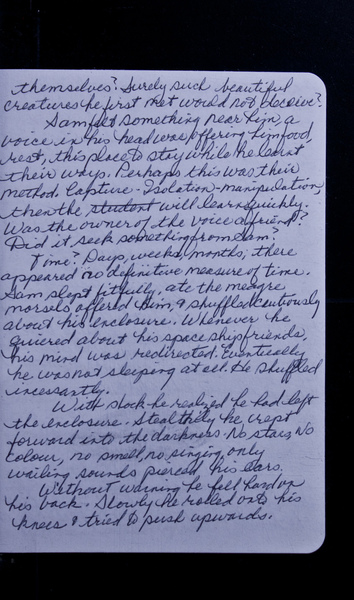 themselves? Surely such beautiful
creatures he first met would not deceive?
Sam felt something near him, a
voice in his head was offering him food,
rest, this place to stay while he learnt
their ways. Perhaps this was their
method. Capture - Isolation - manipulation,
then the student will learn quickly.
Was the owner of the voice a friend?
Did it seek something from Sam?
Time? Days, weeks, months; there
appeared no definitive measure of time.
Sam slept fitfully, ate the meagre
morsels offered him, & shuffled cautiously
about his enclosure. Whenever he
queried about his space ship friends,
his mind was redirected. Eventually
he was not sleeping at all. He shuffled
incessantly.
With shock he realized he had left
the enclosure. Stealthily he crept
forward into the darkness. No stars, No
colour, no smell, no singing, only
wailing sounds pierced his ears.
Without warning he fell hard on
his back. Slowly he rolled onto his
knees & tried to push upwards.